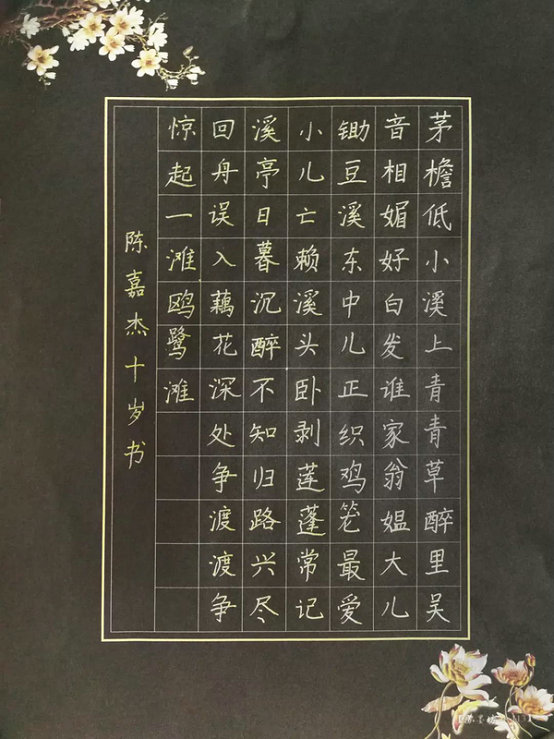 茅檐低小溪上青青草醉里吴
音相媚好白发谁家翁媪大儿
锄豆溪东中儿正织鸡笼最爱
小儿亡赖溪头卧剥莲蓬常记
溪亭日暮沉醉不知归路兴尽
回舟误入藕花深处争渡渡争
惊起一滩鸥鹭滩
陈嘉杰十岁书